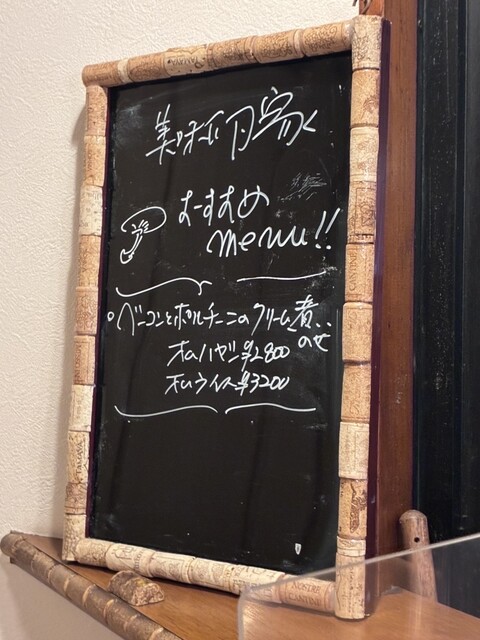 おすすめ
menu!!
ベーコンとポルチーニのクリーム煮..
のせ
オムハヤシ ¥2800
オムライス ¥3200
CANTINE
NOSTRE
CANTINE